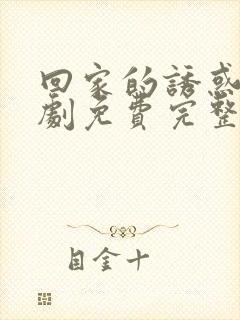 回家的誘惑
劇免費完整
目金十